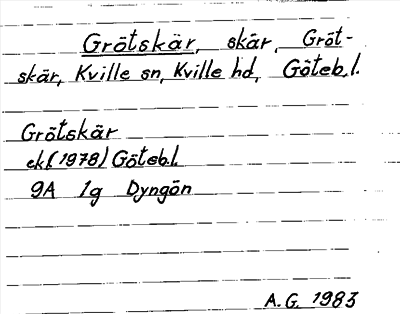 Grötskär, skär, Gröt-
skär, Kville sn, Kville hd, Göteb.l.
Grötskär
ek(1978) Göteb.l
9A 1g Dyngön
A.G. 1983